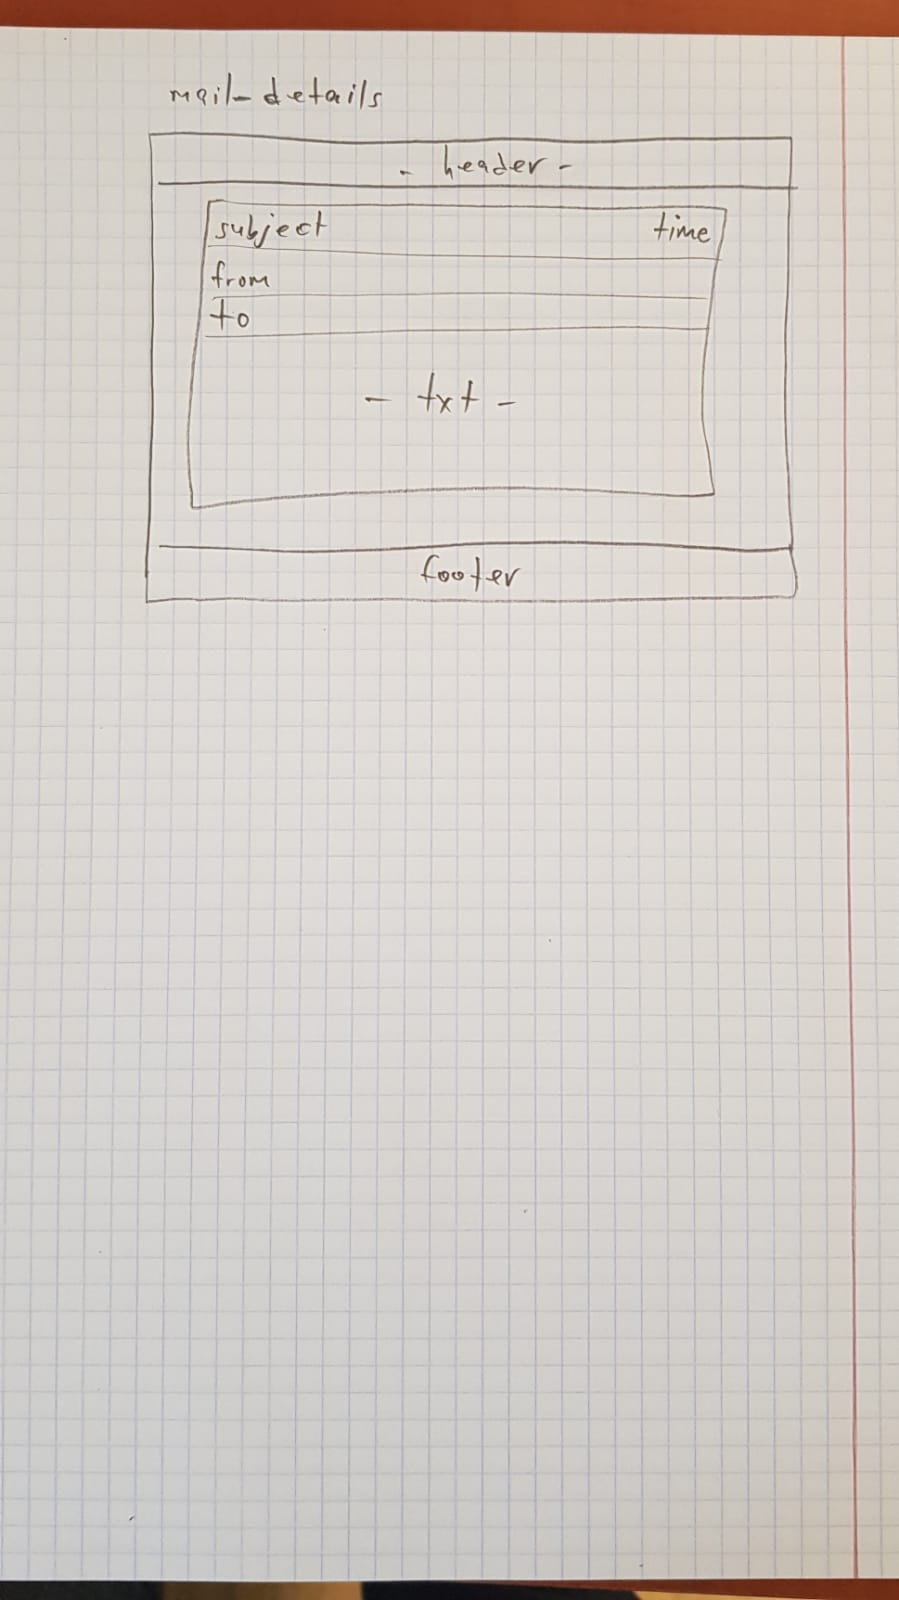 mail-details
- header -
subject time
from
to
- txt -
footer